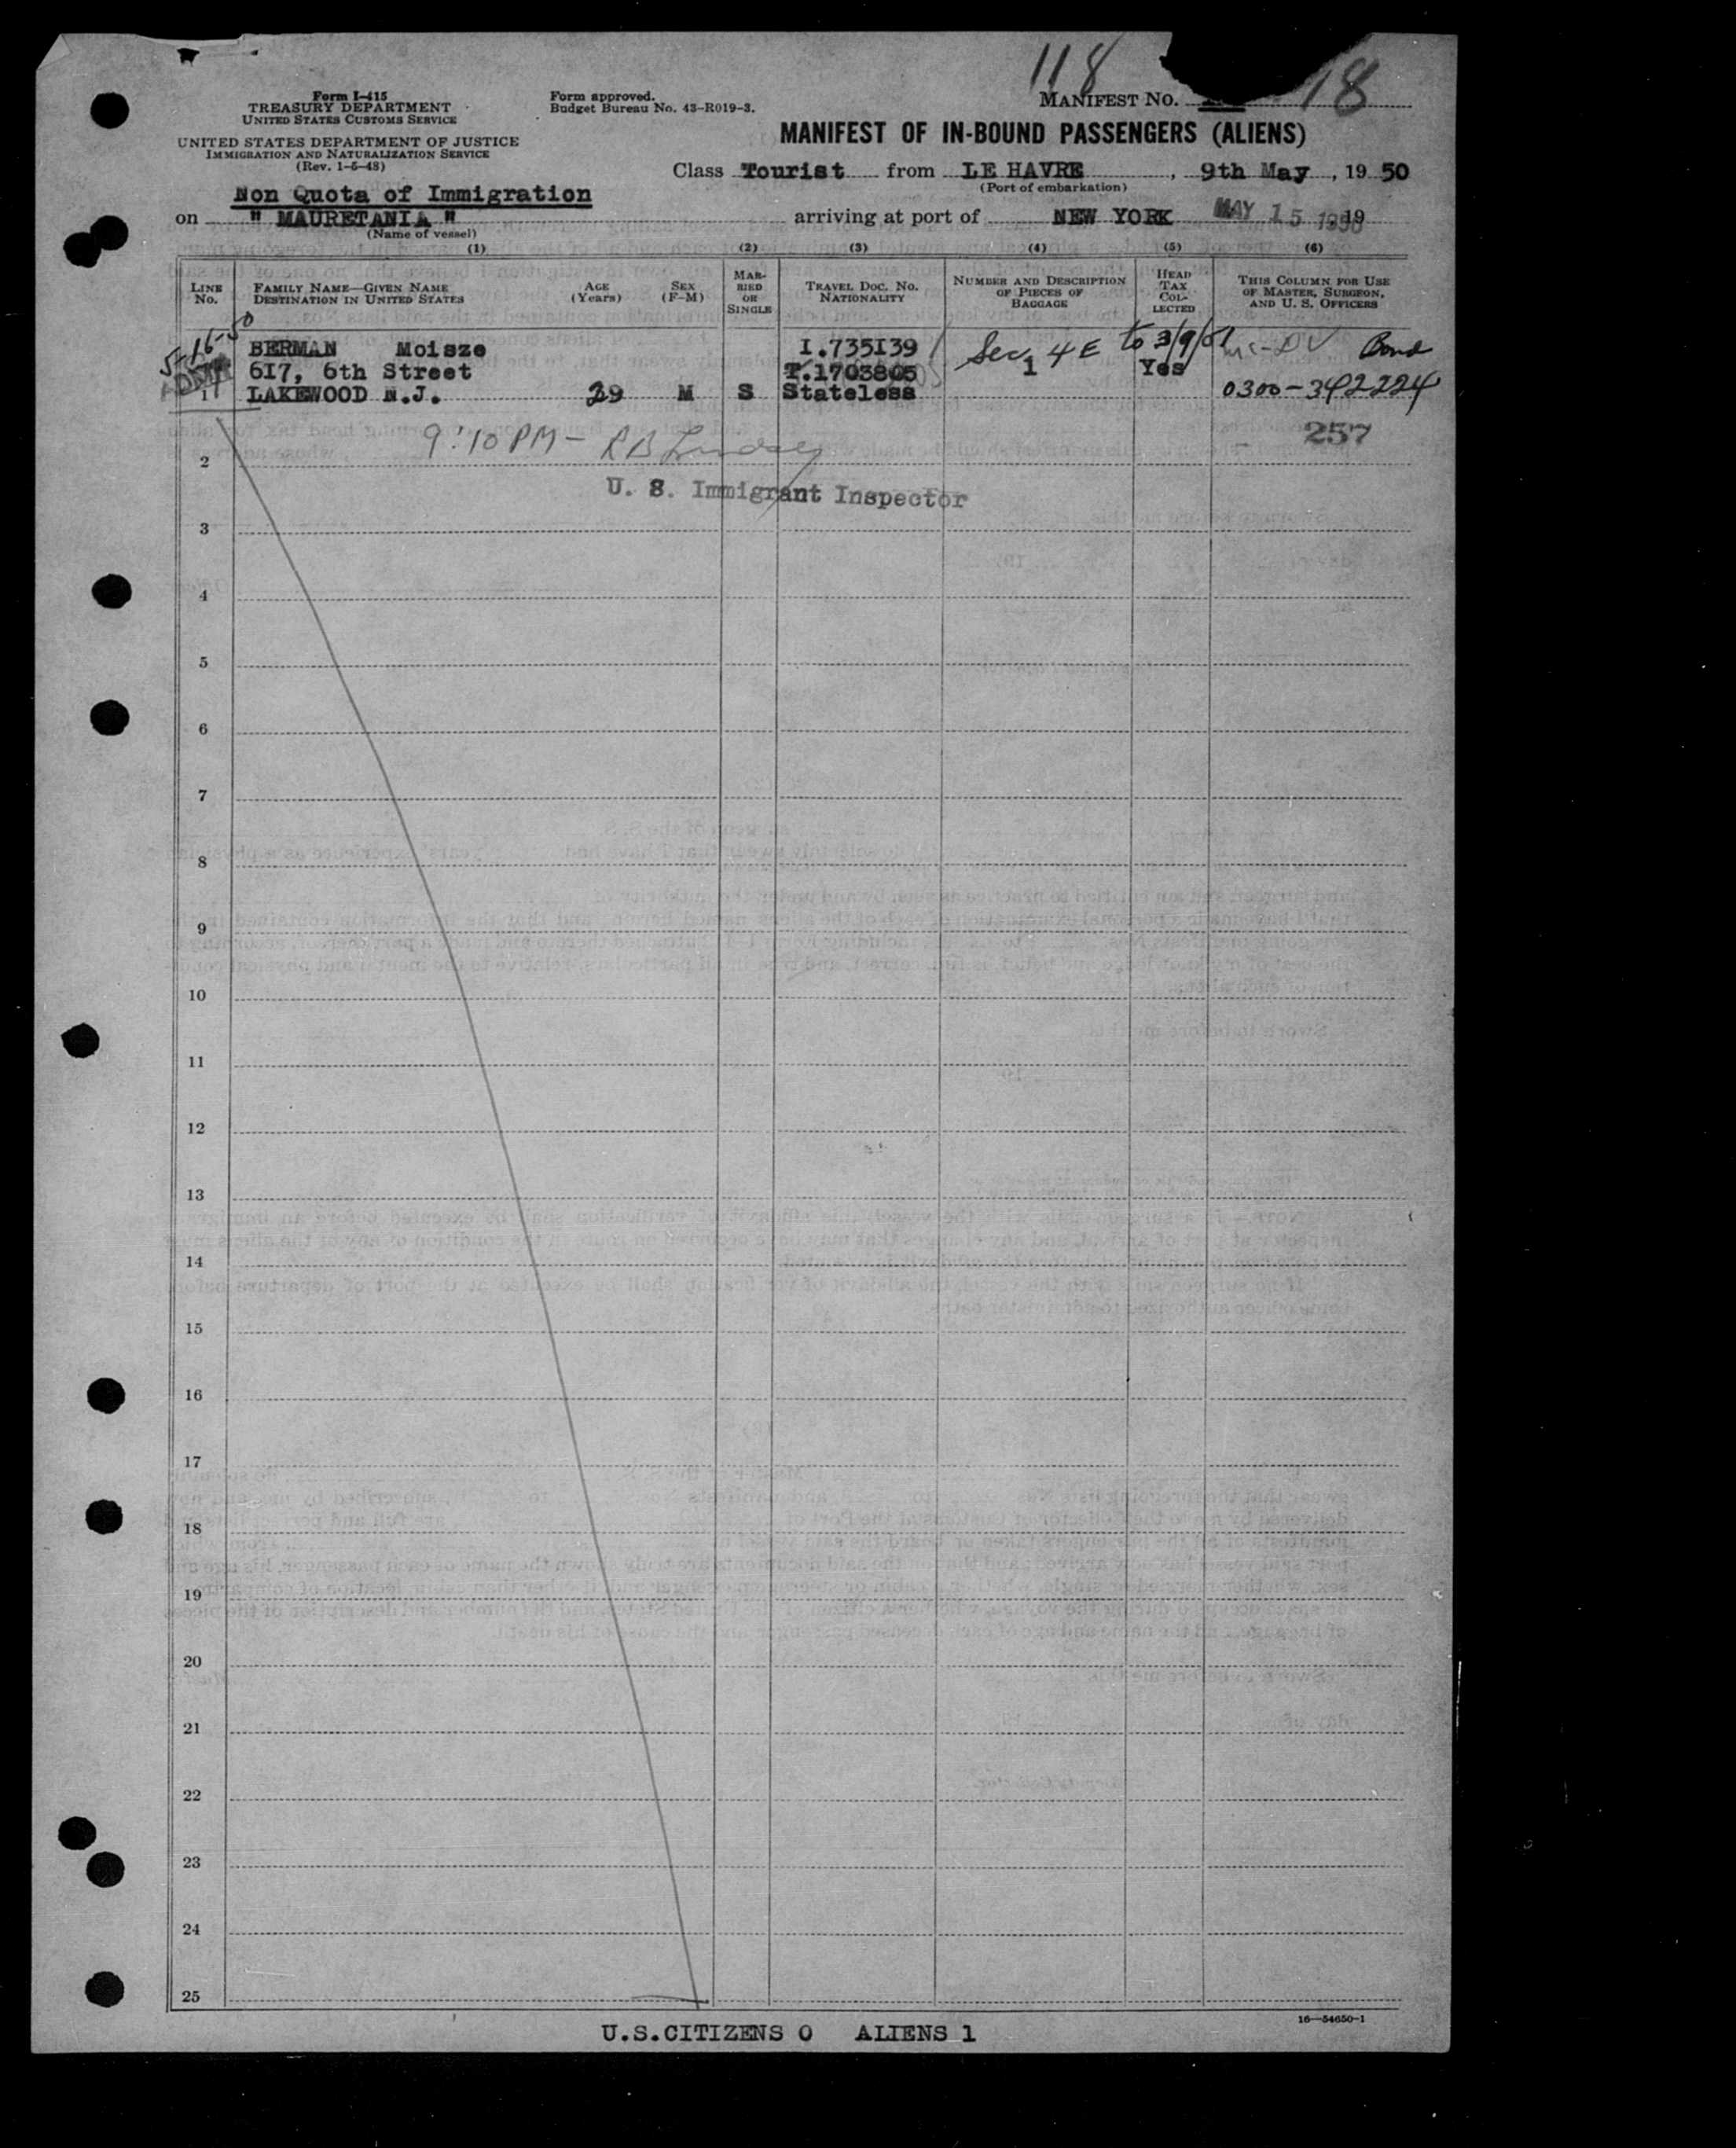 118
18
Form I-415
TREASURY DEPARTMENT
UNITED STATES CUSTOMS SERVICE
UNITED STATES DEPARTMENT OF JUSTICE
IMMIGRATION AND NATURALIZATION SERVICE
(Rev. 1-5-48)
Form approved.
Budget Bureau No. 43-R019-3.
MANIFEST NO.
MANIFEST OF IN-BOUND PASSENGERS (ALIENS)
Class Tourist from LE HAVRE, 9th May, 19 50
(Port of embarkation)
Non Quota of Immigration
on " MAURETANIA " arriving at port of NEW YORK MAY 15 1950 19
(Name of vessel)
(1) (2) (3) (4) (5) (6)
LINE No.
FAMILY NAME—GIVEN NAME
DESTINATION IN UNITED STATES
AGE (Years)
SEX (F-M)
MARRIED OR SINGLE
TRAVEL DOC. NO.
NATIONALITY
NUMBER AND DESCRIPTION OF PIECES OF BAGGAGE
HEAD TAX COLLECTED
THIS COLUMN FOR USE OF MASTER, SURGEON, AND U. S. OFFICERS
5-16-50
BERMAN Moisze I.735139 Sec. 4E to 3/9/51 Bond
617, 6th Street T.1703805 1 Yes
1 LAKEWOOD N.J. 29 M S Stateless 0300-342224
9:10 PM - RB Lindsey 257
2
U. S. Immigrant Inspector
3
4
5
6
7
8
9
10
11
12
13
14
15
16
17
18
19
20
21
22
23
24
25
16—54650-1
U.S.CITIZENS 0 ALIENS 1